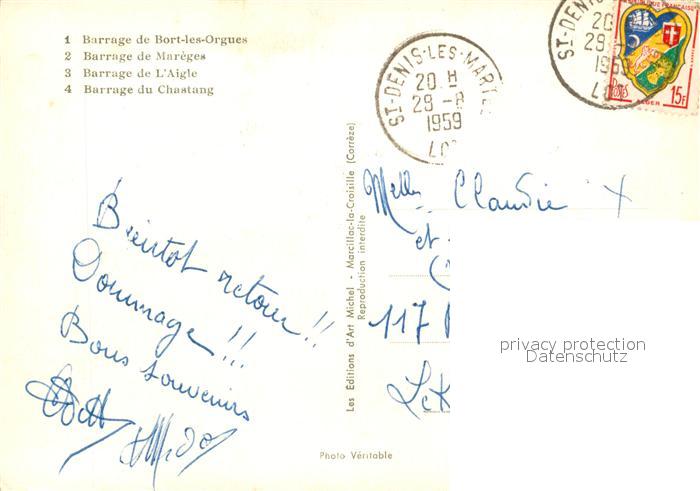 1 Barrage de Bort-les-Orgues
2 Barrage de Marèges
3 Barrage de L'Aigle
4 Barrage du Chastang
Bientot retour !!
Dommage !!!
Bons souvenirs
Les Editions d'Art Michel - Marcillac-la-Croisille (Corrèze)
Reproduction interdite
Photo Véritable
ST-DENIS-LES-MARTEL
20 H
29 -8
1959
LOT
ST-DENIS
20
29
195
LO
15F
ALGER
Melles Claudie
et
117
privacy protection
Datenschutz